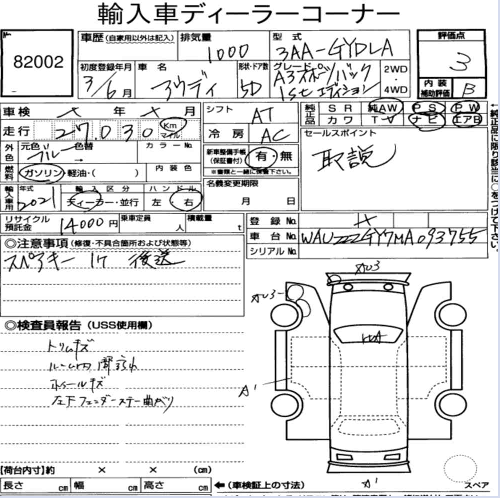 輸入車ディーラーコーナー
82002
車歴 (自家用以外は記入)
排気量 1000
型式 3AA-GYDLA
評価点 3
初度登録年月 3/6月
車名 アウディ
形状・ドア数 5D
グレード A3スポーツバック 1st エディション
2WD
4WD
内装 補助評価 B
車検 年 月
シフト AT
純正品 SR 純AW PS PW
カワ TV ナビ エアB
走行 27,030 Km マイル
冷房 AC
セールスポイント
取説
外色 元色 ブルー 色替
カラーNo
新車整備手帳 (保証書付) 有・無
※書類と一緒に保管下さい
燃料 ガソリン・軽油・( )
内装色
名義変更期限
月 日
輸入車用 年式 2021
輸入区分 ディーラー・並行
ハンドル 左 右
リサイクル預託金 14000円
乗車定員 人
積載量 t
登録No.
車台No. WAUZZZGY7MA093755
シリアルNo.
◎注意事項 (修復・不具合箇所および状態等)
スペアキー 1ケ 後送
◎検査員報告 (USS使用欄)
トリムキズ
ルーム内
ホイールキズ
左下フェンダーステー曲がり
AU3
AU3
A1
A1
【荷台内寸】 × × (cm)
長さ cm 幅 cm 高さ cm
←(車検証上の寸法)
スペア
←純正品に限り該当に○をつけて下さい